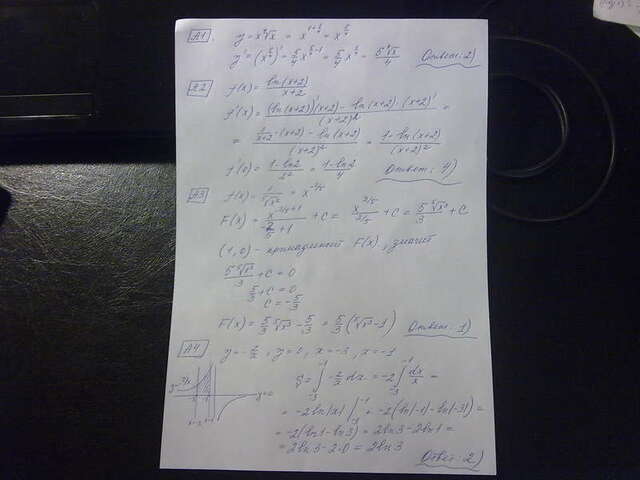 A1. y = x⁴√x = x^(1+1/4) = x^(5/4)
y' = (x^(5/4))' = 5/4 x^(5/4-1) = 5/4 x^(1/4) = 5⁴√x/4 Ответ: 2)
A2 f(x) = ln(x+2)/(x+2)
f'(x) = ((ln(x+2))'(x+2) - ln(x+2)·(x+2)')/(x+2)² =
= (1/(x+2)·(x+2) - ln(x+2))/(x+2)² = (1-ln(x+2))/(x+2)²
f'(0) = (1-ln2)/2² = (1-ln2)/4 Ответ: 4)
A3 f(x) = 1/⁵√x² = x^(-2/5)
F(x) = x^(-2/5+1)/(-2/5+1) + C = x^(3/5)/(3/5) + C = 5⁵√x³/3 + C
(1,0) - принадлежит F(x), значит
5⁵√x³/3 + C = 0
5/3 + C = 0
C = -5/3
F(x) = 5/3 ⁵√x³ - 5/3 = 5/3 (⁵√x³ - 1) Ответ: 1)
A4 y = -2/x, y = 0, x = -3, x = -1
S = ∫₋₃⁻¹ -2/x dx = -2∫₋₃⁻¹ dx/x =
y=-2/x y=0
= -2ln|x| |₋₃⁻¹ = -2(ln|-1| - ln|-3|) =
x=-3 x=-1
= -2(ln1 - ln3) = 2ln3 - 2ln1 =
= 2ln3 - 2·0 = 2ln3
Ответ: 2)